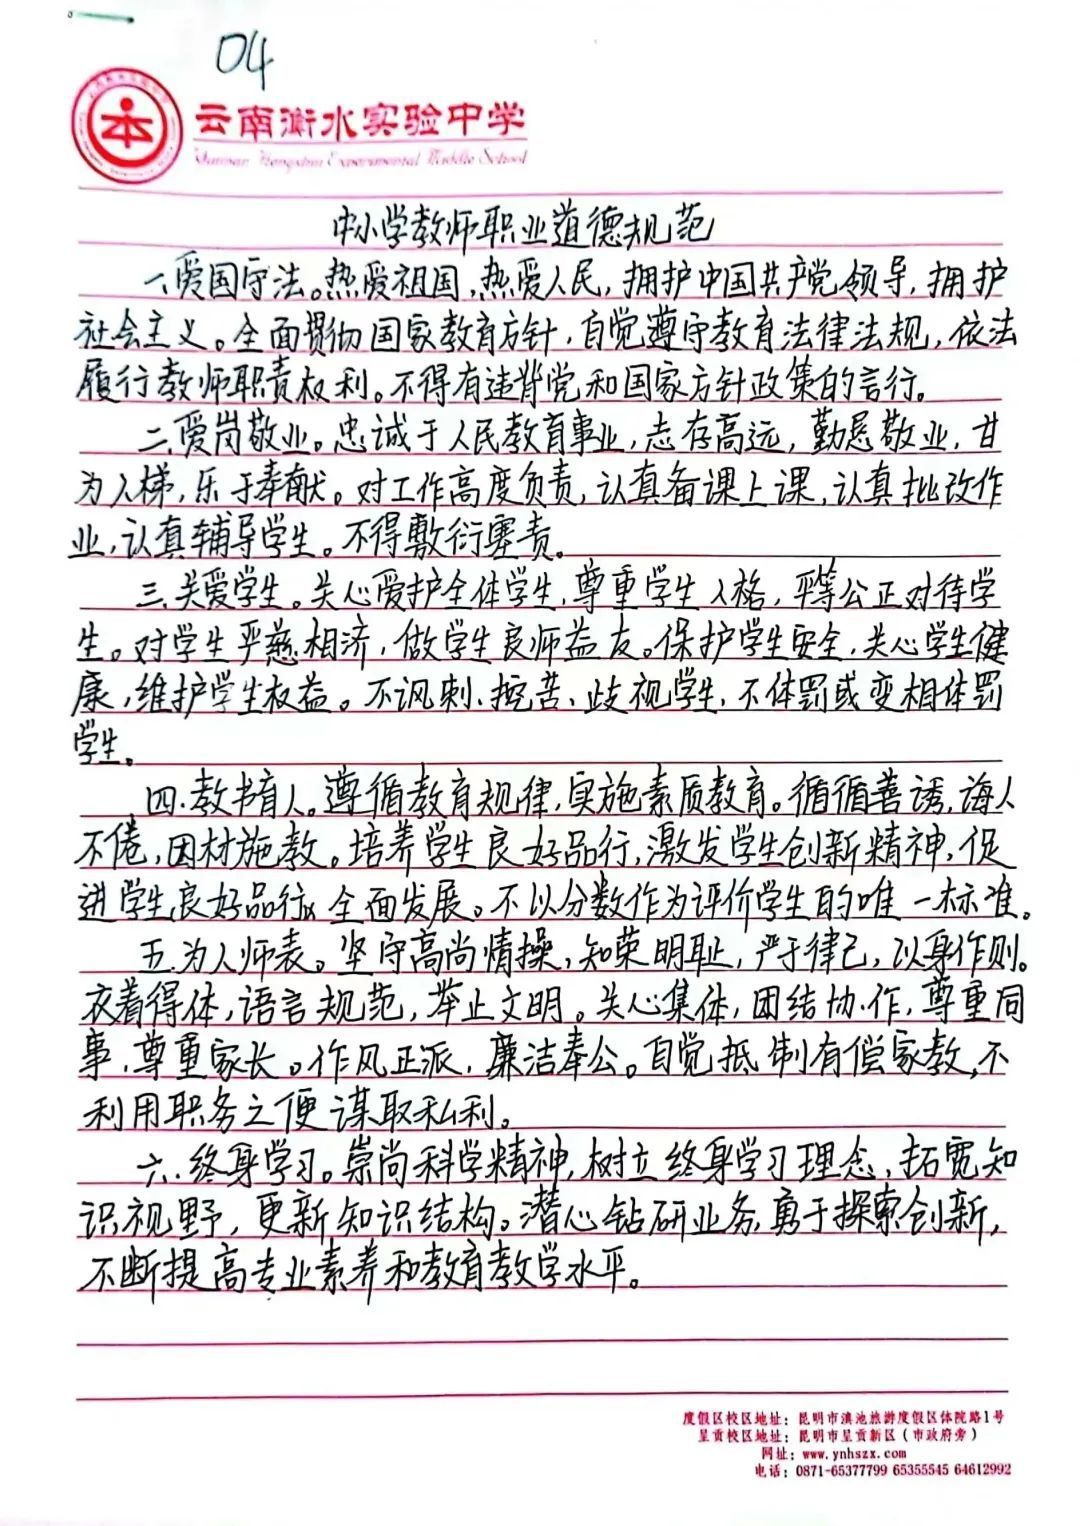 04
云南衡水实验中学
Yunnan Hengshui Experimental Middle School
中小学教师职业道德规范
一、爱国守法。热爱祖国,热爱人民,拥护中国共产党领导,拥护
社会主义。全面贯彻国家教育方针,自觉遵守教育法律法规,依法
履行教师职责权利。不得有违背党和国家方针政策的言行。
二、爱岗敬业。忠诚于人民教育事业,志存高远,勤恳敬业,甘
为人梯,乐于奉献。对工作高度负责,认真备课上课,认真批改作
业,认真辅导学生。不得敷衍塞责。
三、关爱学生。关心爱护全体学生,尊重学生人格,平等公正对待学
生。对学生严慈相济,做学生良师益友。保护学生安全,关心学生健
康,维护学生权益。不讽刺、挖苦、歧视学生,不体罚或变相体罚
学生。
四、教书育人。遵循教育规律,实施素质教育。循循善诱,诲人
不倦,因材施教。培养学生良好品行,激发学生创新精神,促
进学生良好品行全面发展。不以分数作为评价学生的唯一标准。
五、为人师表。坚守高尚情操,知荣明耻,严于律己,以身作则。
衣着得体,语言规范,举止文明。关心集体,团结协作,尊重同
事,尊重家长。作风正派,廉洁奉公。自觉抵制有偿家教,不
利用职务之便谋取私利。
六、终身学习。崇尚科学精神,树立终身学习理念,拓宽知
识视野,更新知识结构。潜心钻研业务,勇于探索创新,
不断提高专业素养和教育教学水平。
度假区校区地址:昆明市滇池旅游度假区体院路1号
呈贡校区地址:昆明市呈贡新区(市政府旁)
网址:www.ynhszx.com
电话:0871-65377799 65355545 64612992